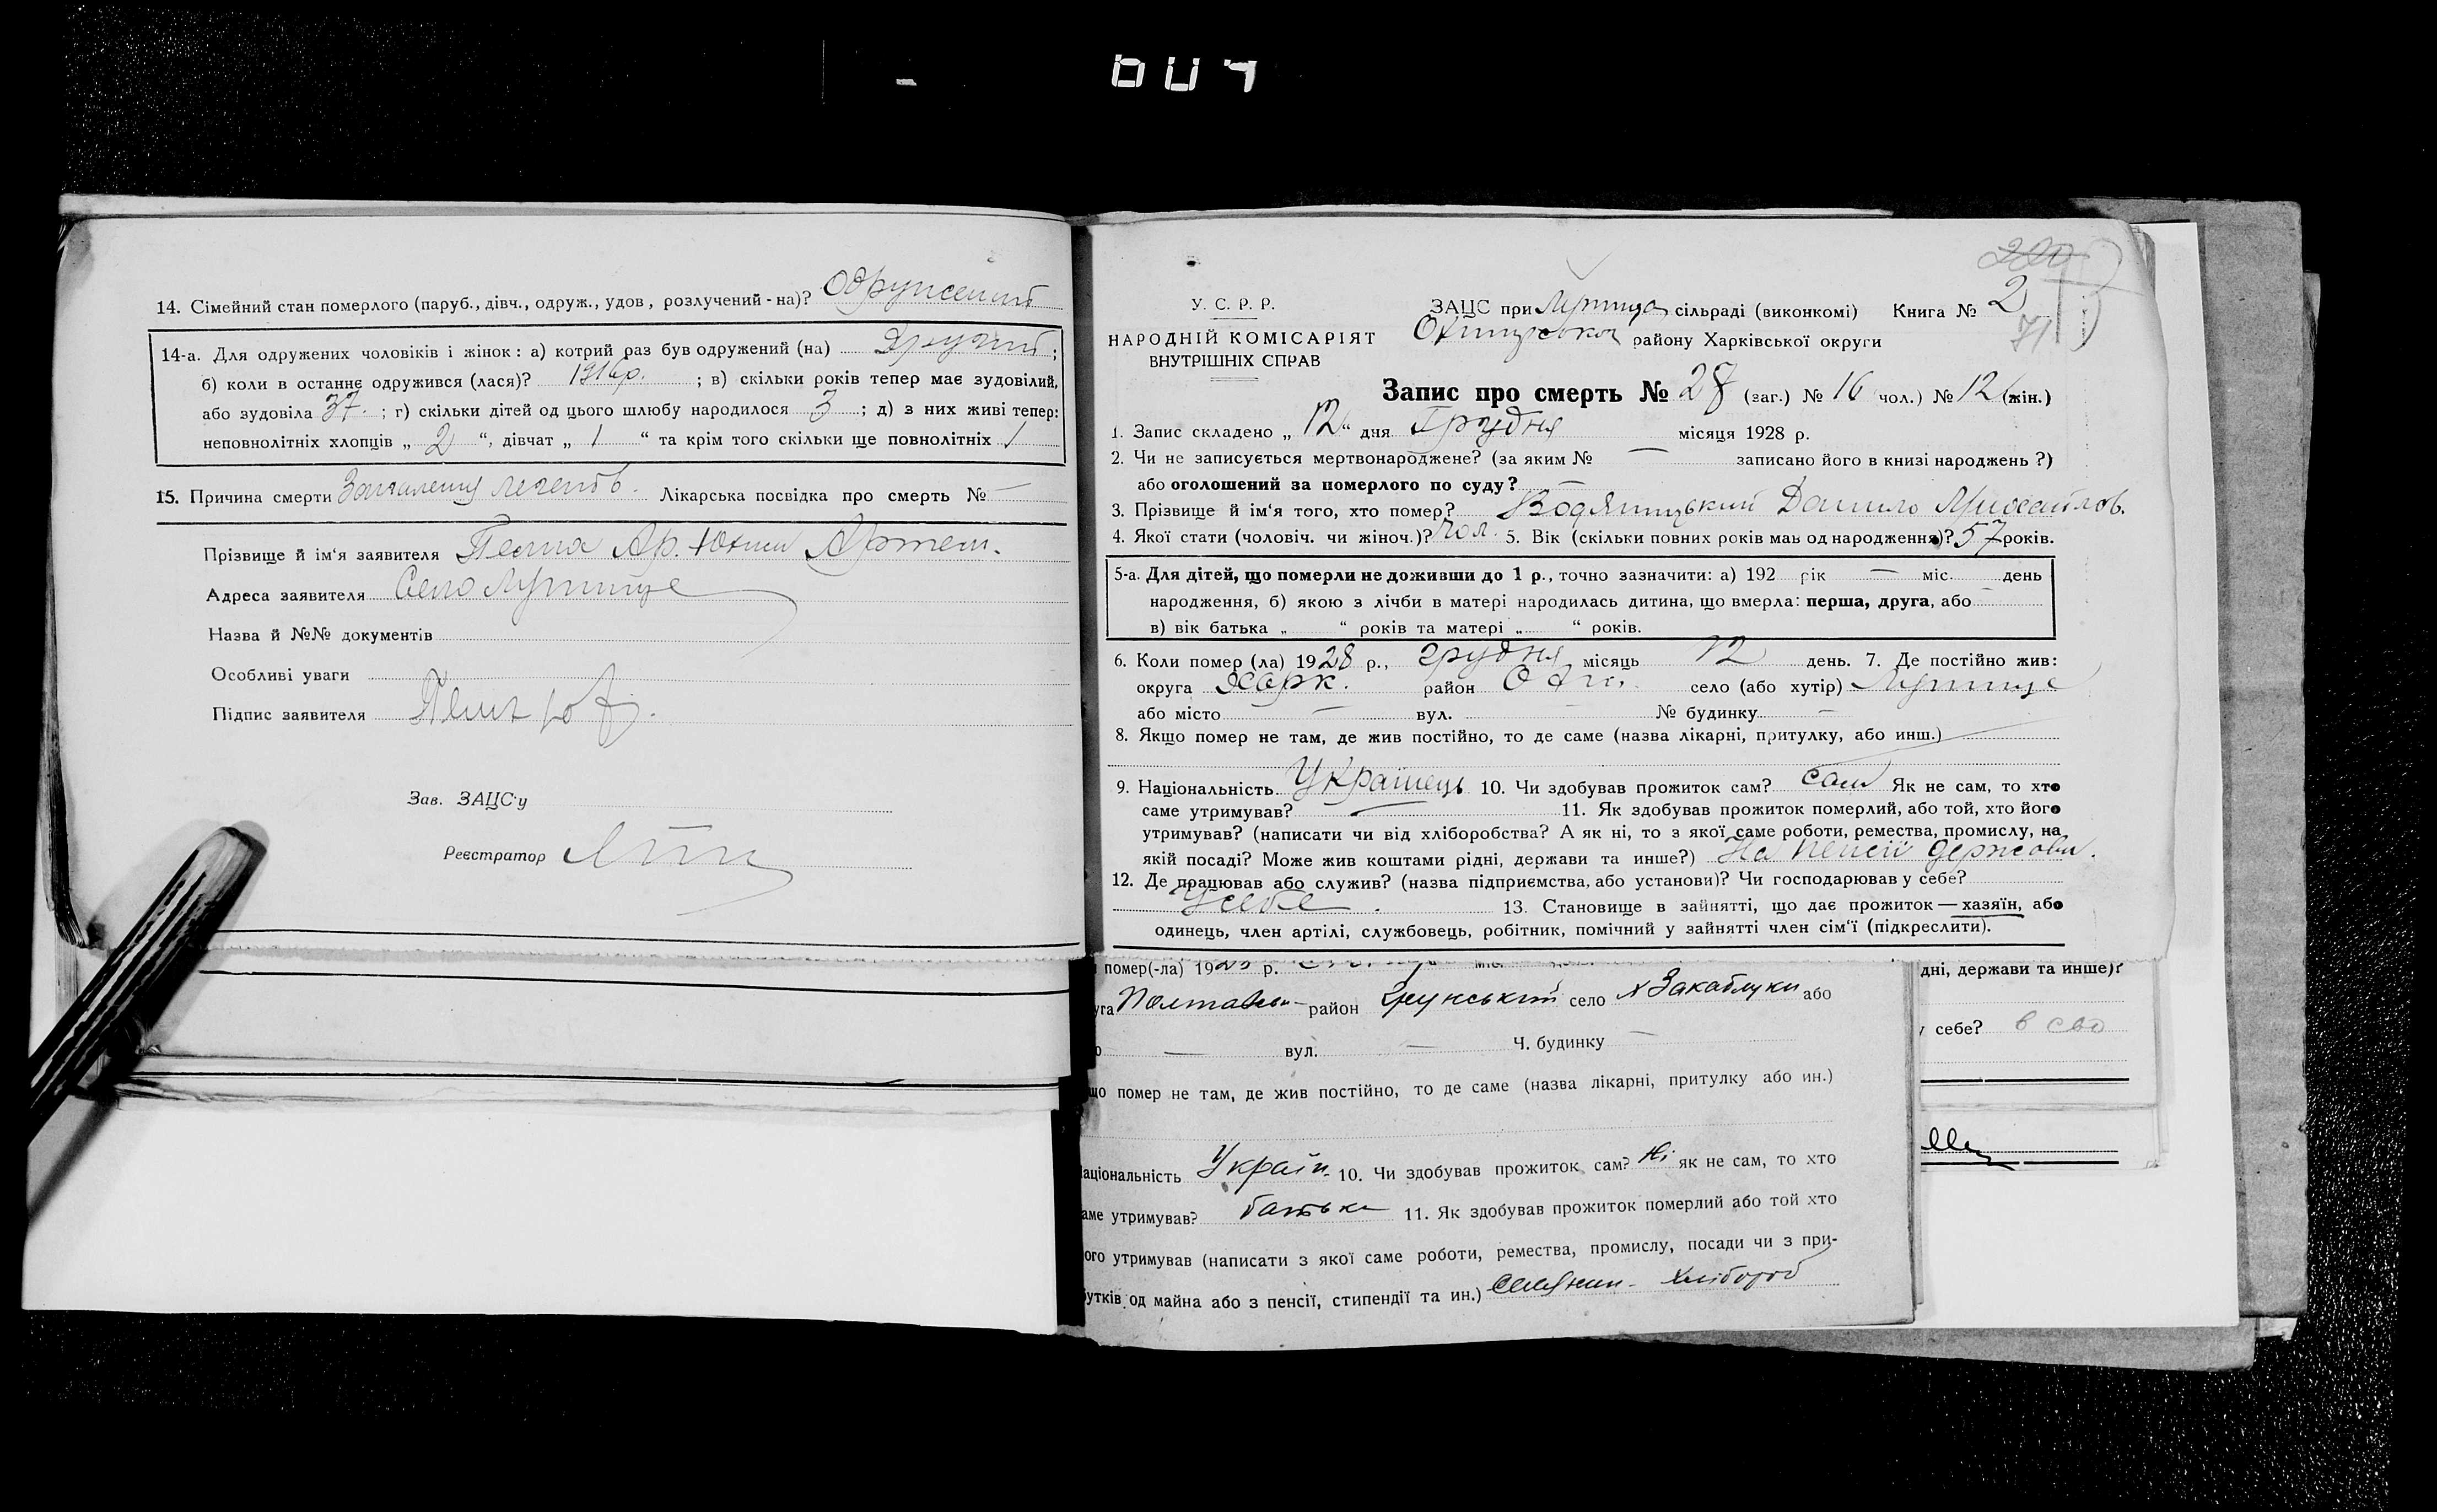 14. Сімейний стан померлого (паруб., дівч., одруж., удов, розлучений-на)? Одружений
14-а. Для одружених чоловіків і жінок: а) котрий раз був одружений (на) Другий;
б) коли в останнє одружився (лася)? 191 р.; в) скільки років тепер має зудовілий,
або зудовіла 37.; г) скільки дітей од цього шлюбу народилося 3; д) з них живі тепер:
неповнолітніх хлопців „ 2 “, дівчат „ 1 “ та крім того скільки ще повнолітніх 1
15. Причина смерти Запалення легенів. Лікарська посвідка про смерть № —
Прізвище й ім‘я заявителя
Адреса заявителя Село
Назва й №№ документів
Особливі уваги
Підпис заявителя
Зав. ЗАЦС‘у
Реєстратор
2
71
У. С. Р. Р.
НАРОДНІЙ КОМІСАРІЯТ
ВНУТРІШНІХ СПРАВ
ЗАЦС при сільраді (виконкомі) Книга № 2
району Харківської округи
Запис про смерть № 28 (заг.) № 16 чол.) № 12 (жін.)
1. Запис складено „ 12 “ дня Грудня місяця 1928 р.
2. Чи не записується мертвонароджене? (за яким № — записано його в книзі народжень ?)
або оголошений за померлого по суду? —
3. Прізвище й ім‘я того, хто помер? Водяницький Данило Михайлов.
4. Якої стати (чоловіч. чи жіноч.)? Чол. 5. Вік (скільки повних років мав од народження)? 57 років.
5-а. Для дітей, що померли не доживши до 1 р., точно зазначити: а) 192 рік — міс. день
народження, б) якою з лічби в матері народилась дитина, що вмерла: перша, друга, або
в) вік батька „ “ років та матері „ “ років.
6. Коли помер (ла) 1928 р., грудня місяць 12 день. 7. Де постійно жив:
округа Харк. район село (або хутір)
або місто — вул. — № будинку —
8. Якщо помер не там, де жив постійно, то де саме (назва лікарні, притулку, або инш.)
9. Національність Українець 10. Чи здобував прожиток сам? сам Як не сам, то хто
саме утримував? — 11. Як здобував прожиток померлий, або той, хто його
утримував? (написати чи від хліборобства? А як ні, то з якої саме роботи, ремества, промислу, на
якій посаді? Може жив коштами рідні, держави та инше?) На пенсії держави.
12. Де працював або служив? (назва підприємства, або установи)? Чи господарював у себе?
У себе. 13. Становище в зайнятті, що дає прожиток — хазяїн, або
одинець, член артілі, службовець, робітник, помічний у зайнятті член сім‘ї (підкреслити).
помер(-ла) 19 р. міс.
уга район село х Закаблуки або
о — вул. — Ч. будинку —
що помер не там, де жив постійно, то де саме (назва лікарні, притулку або ин.)
аціональність Україн. 10. Чи здобував прожиток сам? Ні як не сам, то хто
аме утримував? батьки 11. Як здобував прожиток померлий або той хто
ого утримував (написати з якої саме роботи, ремества, промислу, посади чи з при-
бутків од майна або з пенсії, стипендії та ин.) Селянин - хлібороб
дні, держави та инше)?
у себе? в сво